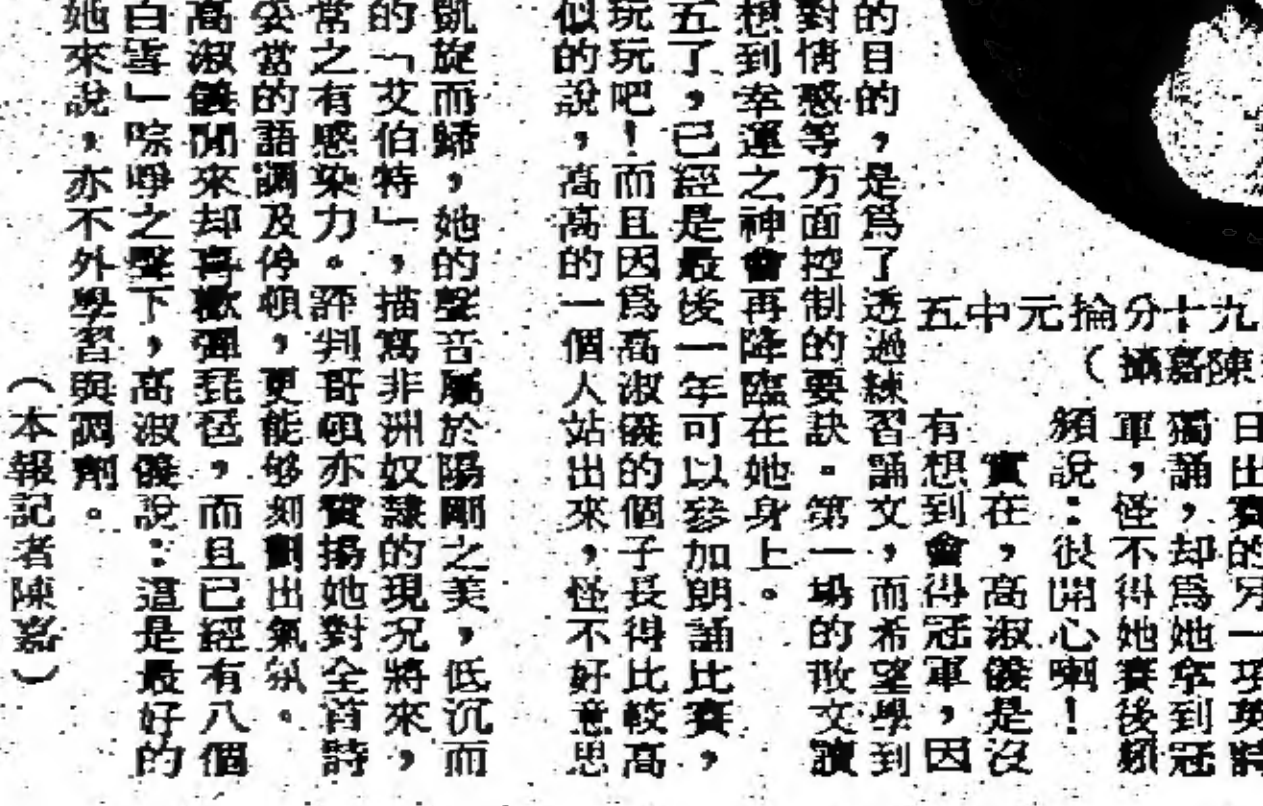 九十分掄元中五
陳嘉攝）
日出賽的另一項英詩
獨誦，却爲她拿到冠
軍，怪不得她賽後頻
頻說：很開心喇！
實在，高淑儀是沒
有想到會得冠軍，因
的目的，是爲了透過練習誦文，而希望學到
對情感等方面控制的要訣。第一場的散文讀
想到幸運之神會再降臨在她身上。
五了，已經是最後一年可以參加朗誦比賽，
玩玩吧！而且因爲高淑儀的個子長得比較高
似的說，高高的一個人站出來，怪不好意思
凱旋而歸，她的聲音屬於陽剛之美，低沉而
的「艾伯特」，描寫非洲奴隸的現況將來，
常之有感染力。評判哥頓亦贊揚她對全首詩
妥當的語調及停頓，更能够刻劃出氣氛。
高淑儀閒來却喜歡彈琵琶，而且已經有八個
白雪」琮琤之聲下，高淑儀說：這是最好的
她來說，亦不外學習與調劑。
（本報記者陳嘉）